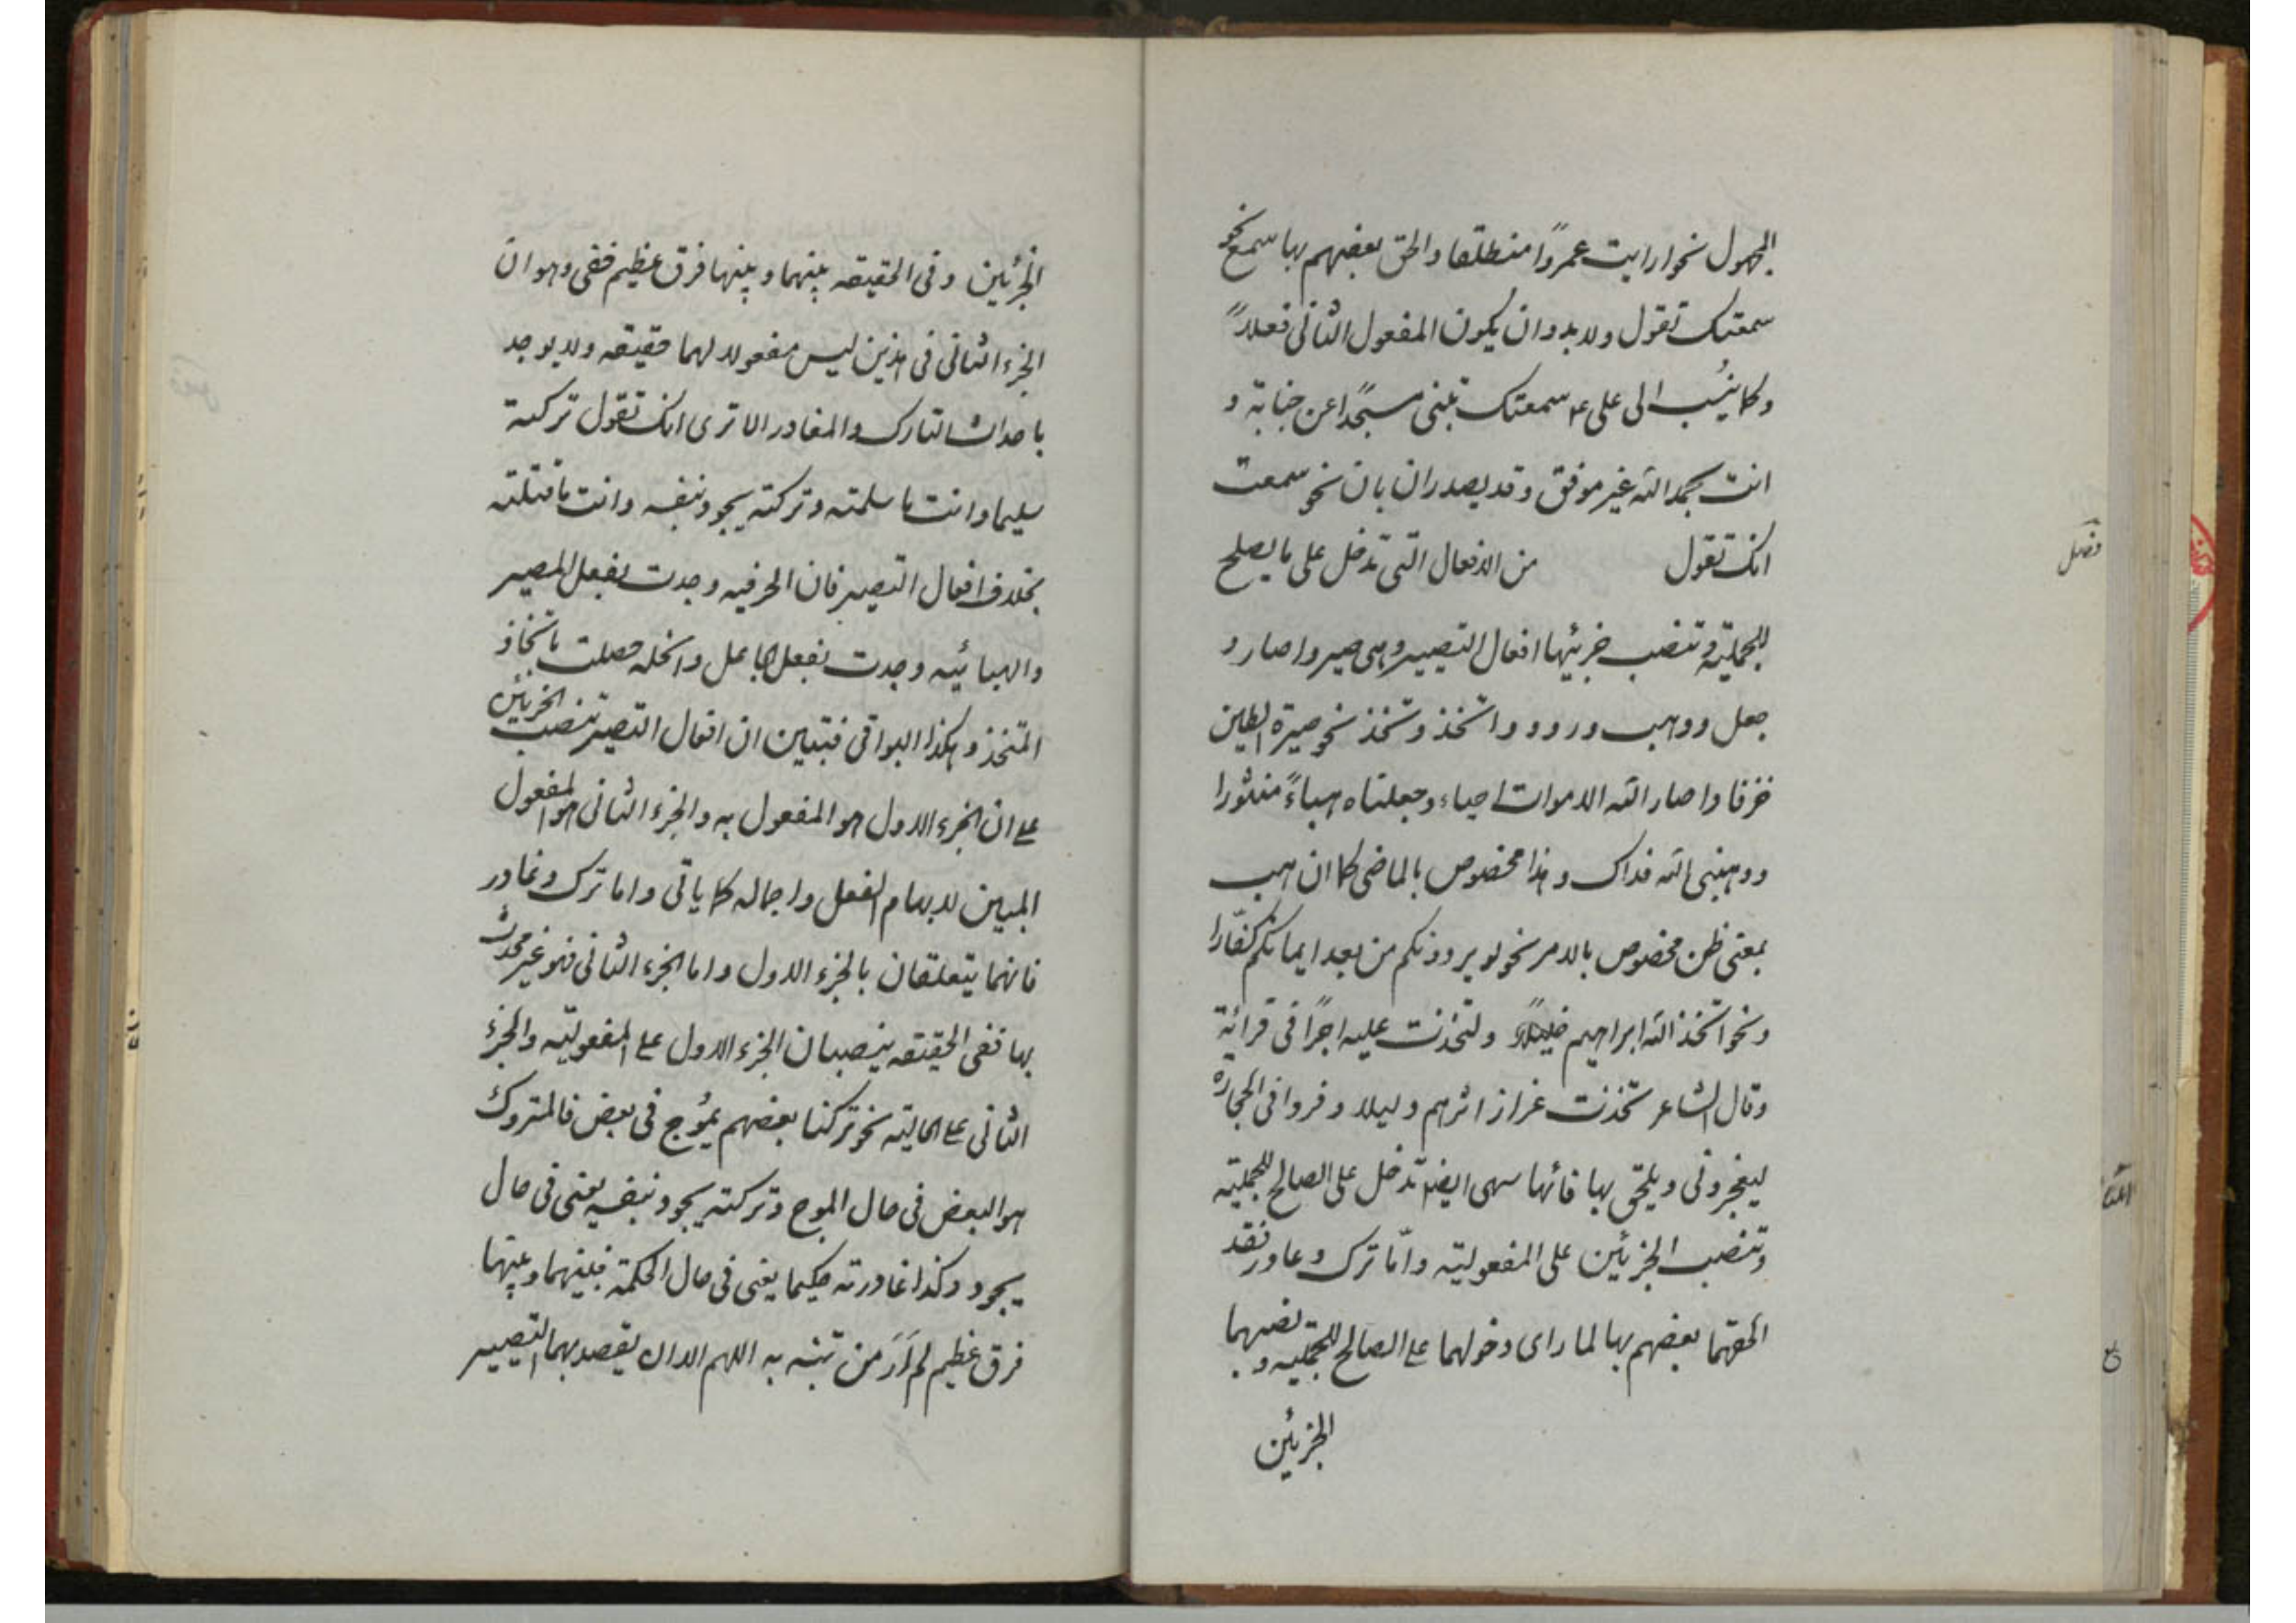 المجهول نحو ارايت عمروًا منطلقا والحق بعضهم بها سمع نحو
سمعتك تقول ولا بد وان يكون المفعول الثانى فعلاً
وكما ينُسب الى على ع سمعتك تبنى مسجًدا عن جناية و
انت بحمد الله غير موفق وقد يصدران بان نحو سمعت
انك تقول من الافعال التى تدخل على ما يصلح
للجملتيه وتنصب جزئيها افعال التصيير وهى صير واصار و
جعل ووهب ورد و واتخذ وتخذ نحو صيرة الطين
خزفا واصار الله الاموات احياء وجعلناه هباءً منثورا
ووهبنى الله فداك وهذا مخصوص بالماضى كما ان هب
بمعنى ظن مخصوص بالامر نحو لو يردونكم من بعد ايمانكم كفّارا
ونحو اتخذ الله ابراهيم خليلاً ولتخذت عليه اجرًا فى قرائة
وقال الشاعر تخذت غراز اثرهم دليلا وفروا فى الحجازة
ليعجزونى ويلحق بها فانها سهى ايضا تدخل على الصالح للجملتيه
وتنصب الجزئين على المفعوليته وامّا ترك وغادر فقد
الحقهما بعضهم بها لما راى دخولهما على الصالح للجمليته و نصبهما
الجزئين
فصل
الجزئين وفى الحقيقه بينهما وبينها فرق عظيم خفى وهو ان
الجزء الثانى فى هذين ليس مفعولا لهما حقيقه ولا يوجد
باحداث التارك والمغادر الا ترى انك تقول تركته
سليما وانت ما سلمته وتركته يجود بنفسه وانت ما قتلته
بخلاف افعال التصيير فان الخزفيه وجدت بفعل المصير
والهبائيه وجدت بفعل الجاعل والخله حصلت باتخاذ
المتخذ وهكذا البواقى فتبين ان افعال التصير تنصب الجزئين
على ان الجزء الاول هو المفعول به والجزء الثانى هو المفعول
المبين لابهام الفعل واجماله كما ياتى واما ترك وغادر
فانهما يتعلقان بالجزء الاول واما الجزء الثانى فهو غير محدث
بها ففى الحقيقه ينصبان الجزء الاول على المفعوليته والجزء
الثانى على الحاليته نحو تركنا بعضهم يمُوج فى بعض فالمتروك
هو البعض فى حال الموج وتركته يجود بنفسه يعنى فى حال
يجود وكذا غادرته حكيما يعنى فى حال الحكمة فبينهما وبينها
فرق عظيم لم اَرَ من تنبه به اللهم الا ان يقصد بهما التصيير